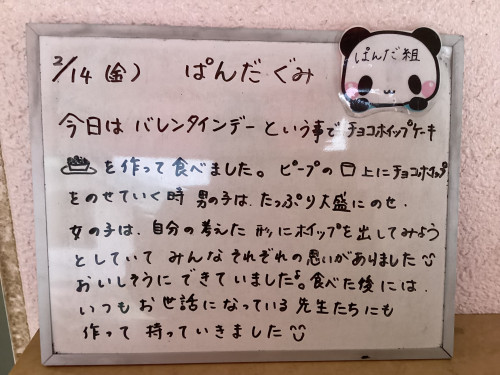 2/14(金) ぱんだぐみ
ぱんだ組
今日は バレンタインデー という事で チョコホイップケーキ
を作って食べました。ピープの 上にチョコホイップ
をのせていく時 男の子は、たっぷり大盛にのせ、
女の子は、自分の考えた 形にホイップを出してみよう
としていて みんなそれぞれの思いがありました
おいしそうに できていましたよ。食べた後には、
いつもお世話になっている 先生たちにも
作って 持っていきました